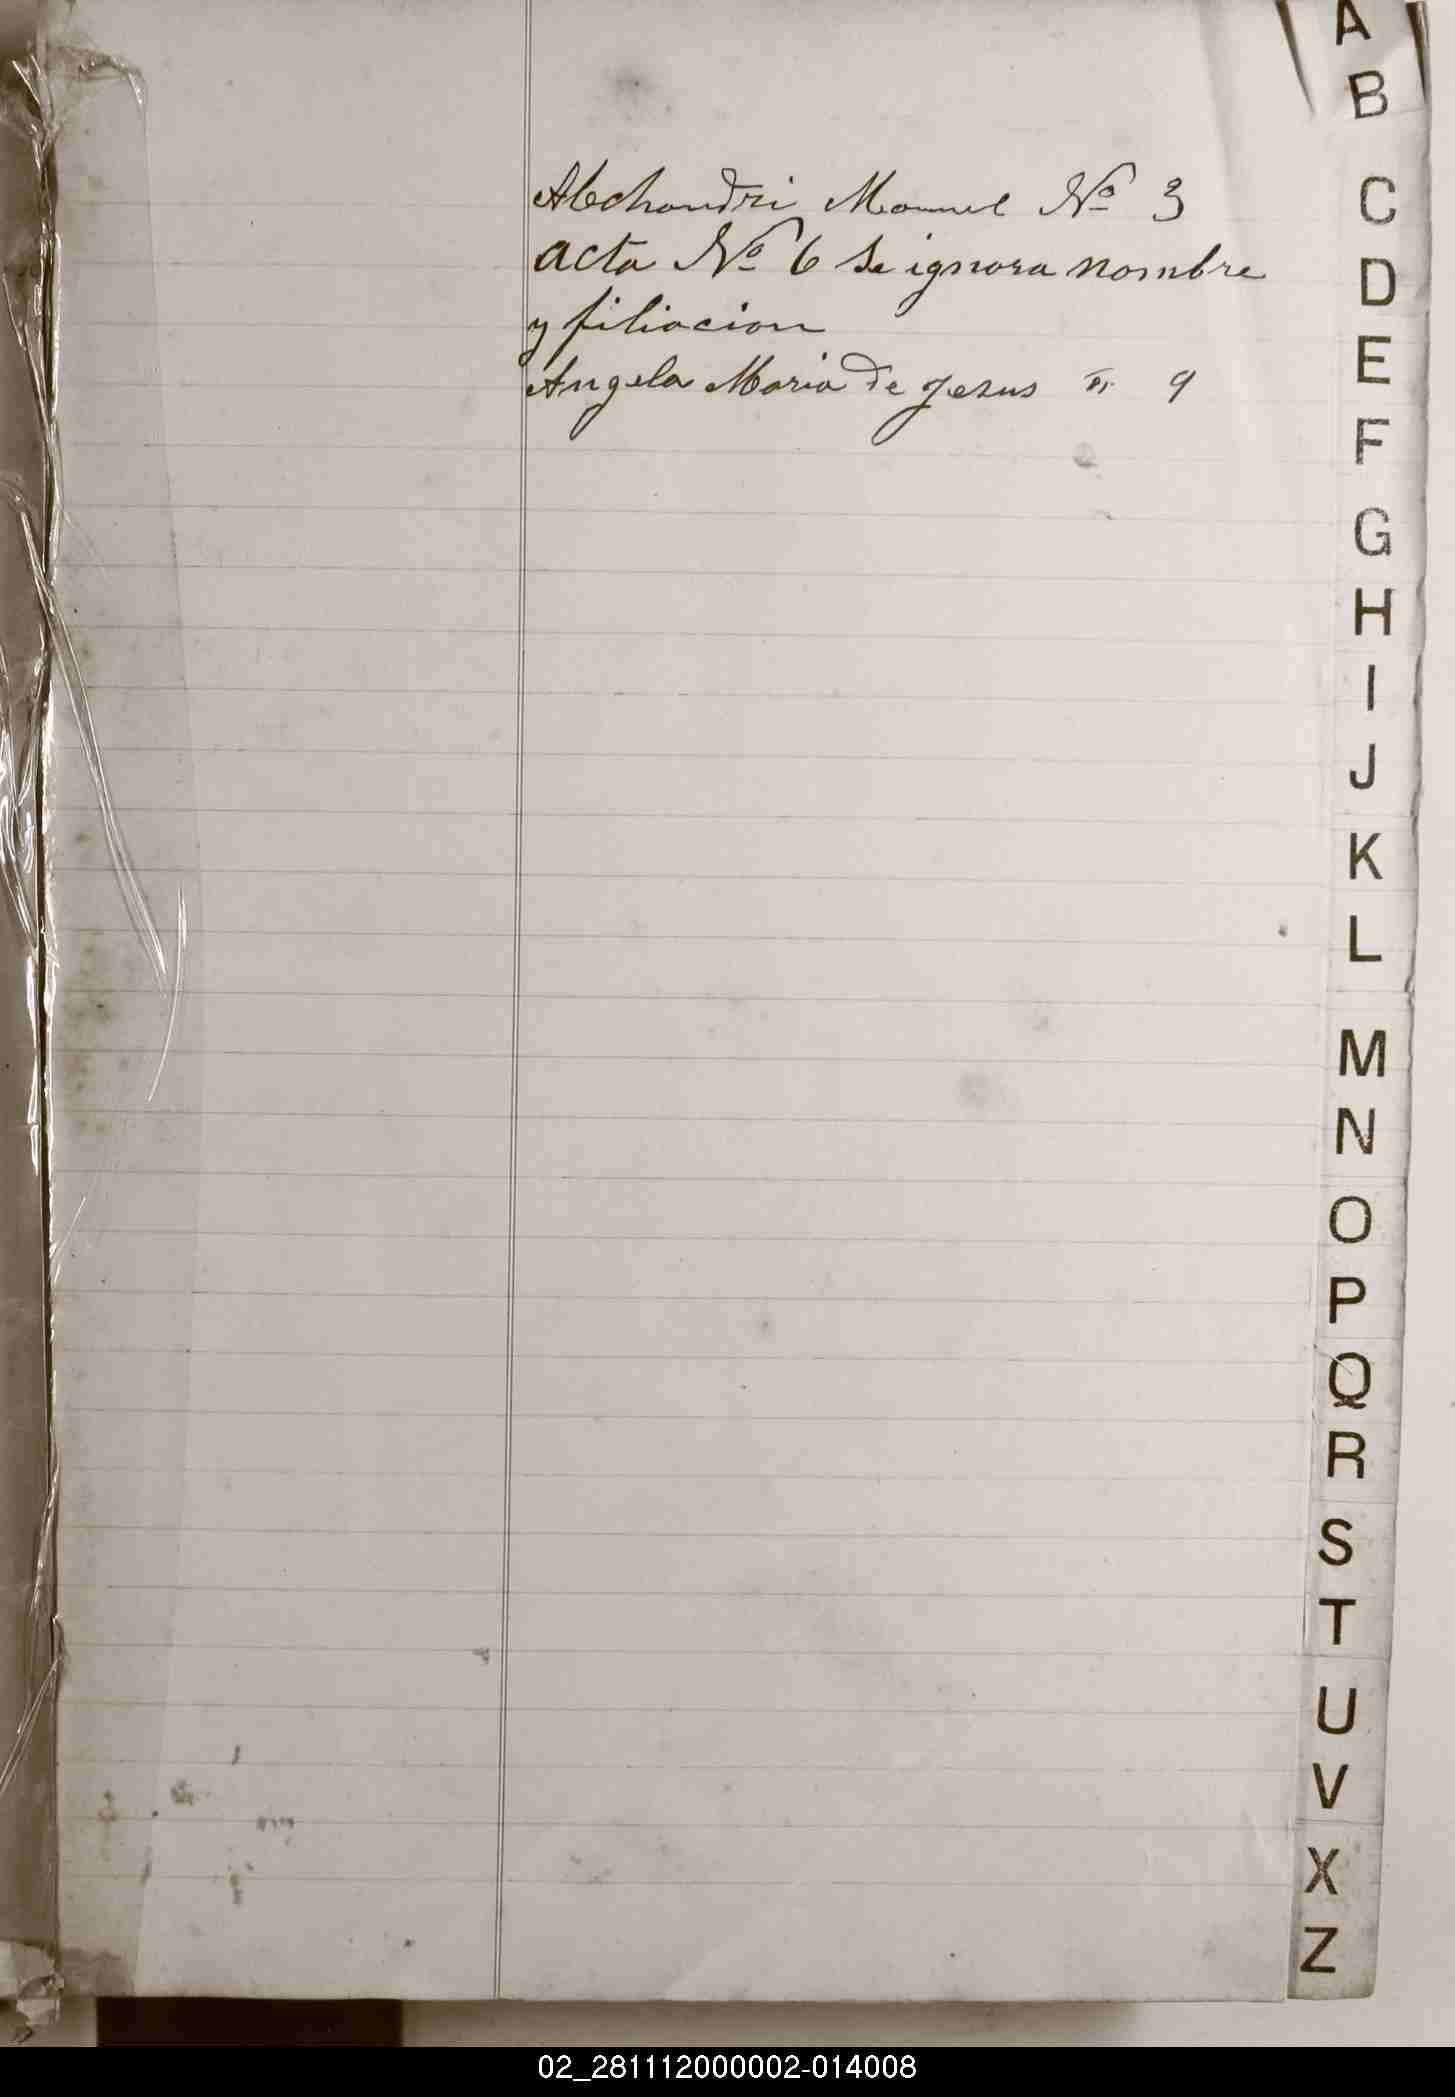 Alechandri Manuel Nº 3
acta Nº 6 Se ignora nombre
y filiacion
Angela Maria de Jesus " 9
A
B
C
D
E
F
G
H
I
J
K
L
M
N
O
P
Q
R
S
T
U
V
X
Z
02_281112000002-014008